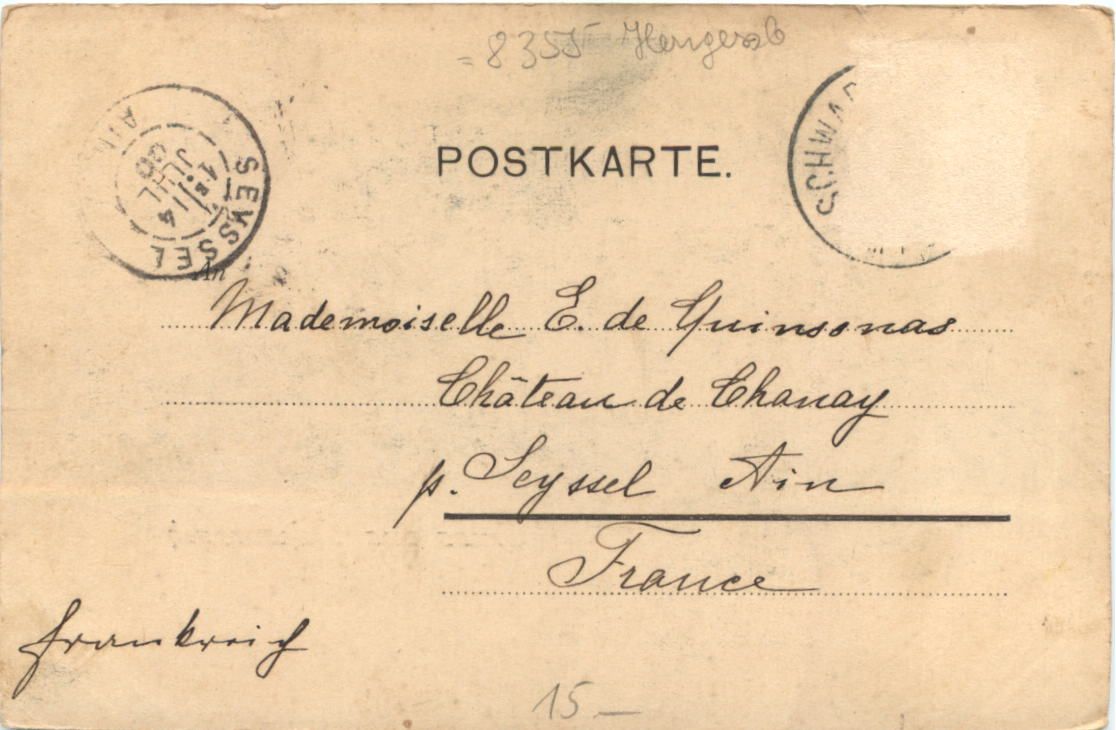 = 8355 Hengersb
SEYSSEL
AIN
1E
14
JUIL
00
SCHWAR
POSTKARTE.
An
Mademoiselle E. de Quinsonas
Château de Chanay
p. Seyssel Ain
France
Frankreich
15 —